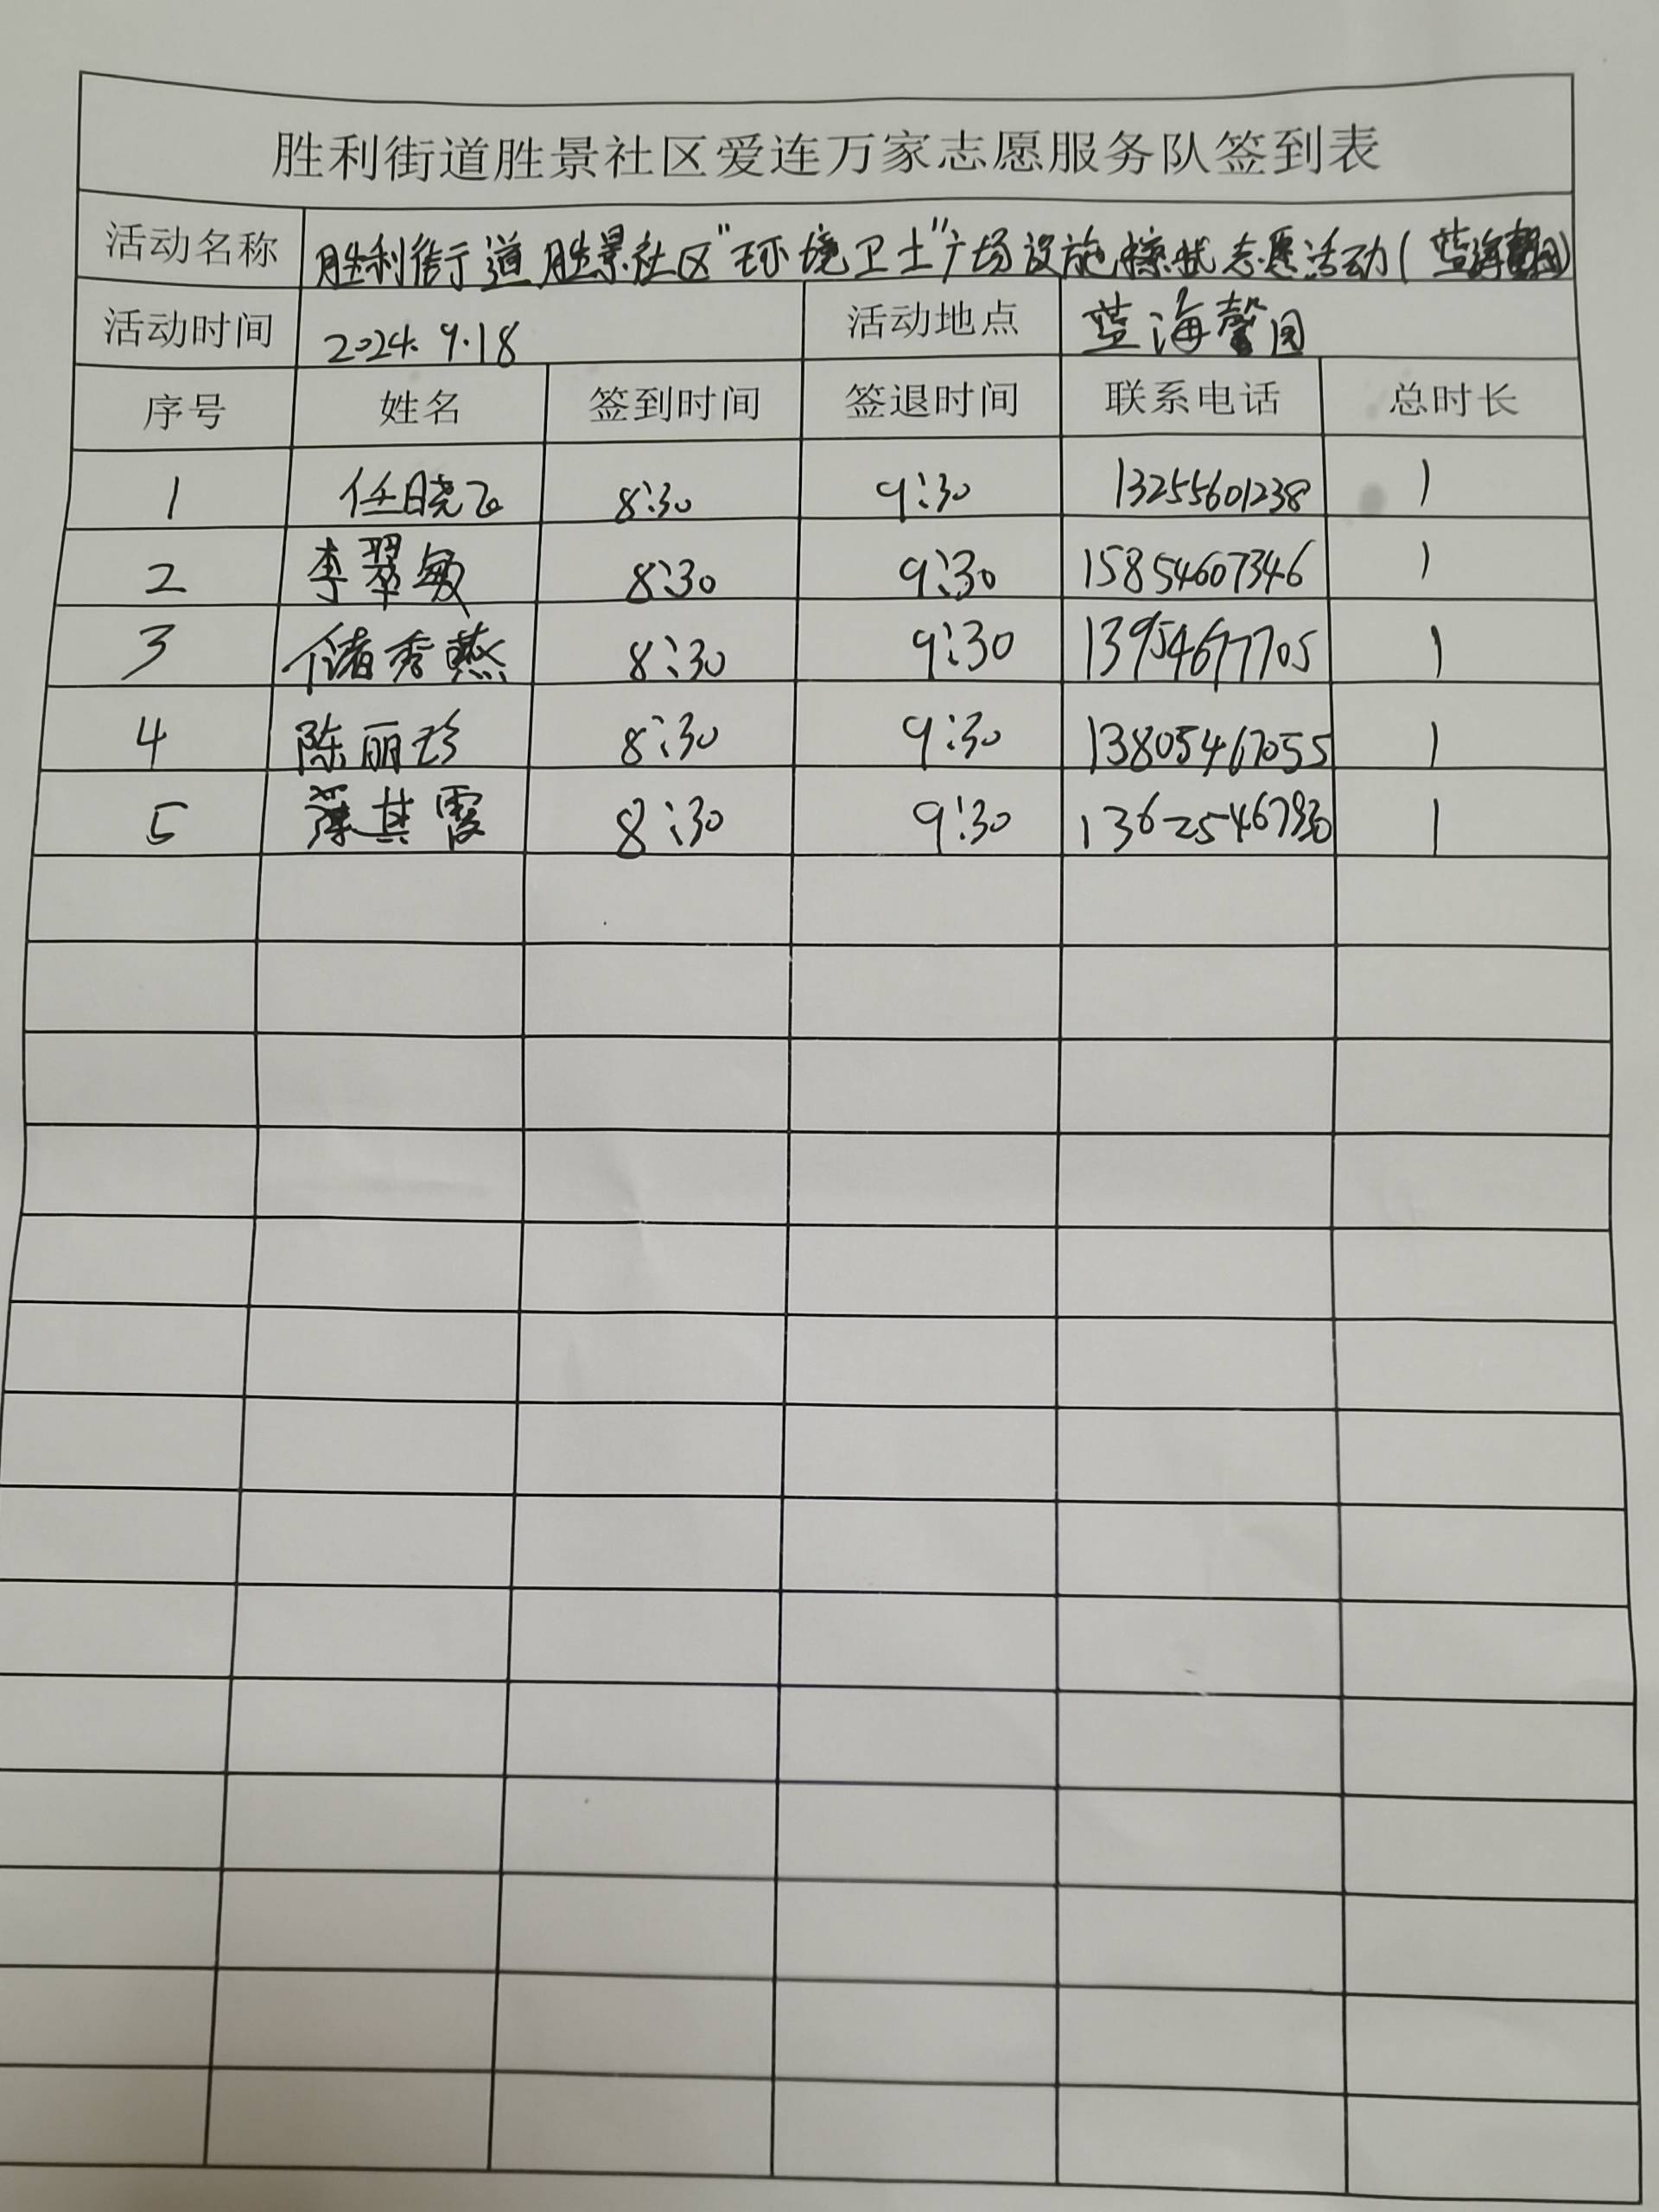 胜利街道胜景社区爱连万家志愿服务队签到表
活动名称 胜利街道胜景社区"环境卫士"广场设施擦拭志愿活动(蓝海馨园)
活动时间 2024.9.18 活动地点 蓝海馨园
序号 姓名 签到时间 签退时间 联系电话 总时长
1 任晓飞 8:30 9:30 13255601238 1
2 李翠敏 8:30 9:30 15854607346 1
3 储秀燕 8:30 9:30 13954677705 1
4 陈丽珍 8:30 9:30 13805467055 1
5 薄其霞 8:30 9:30 1 1